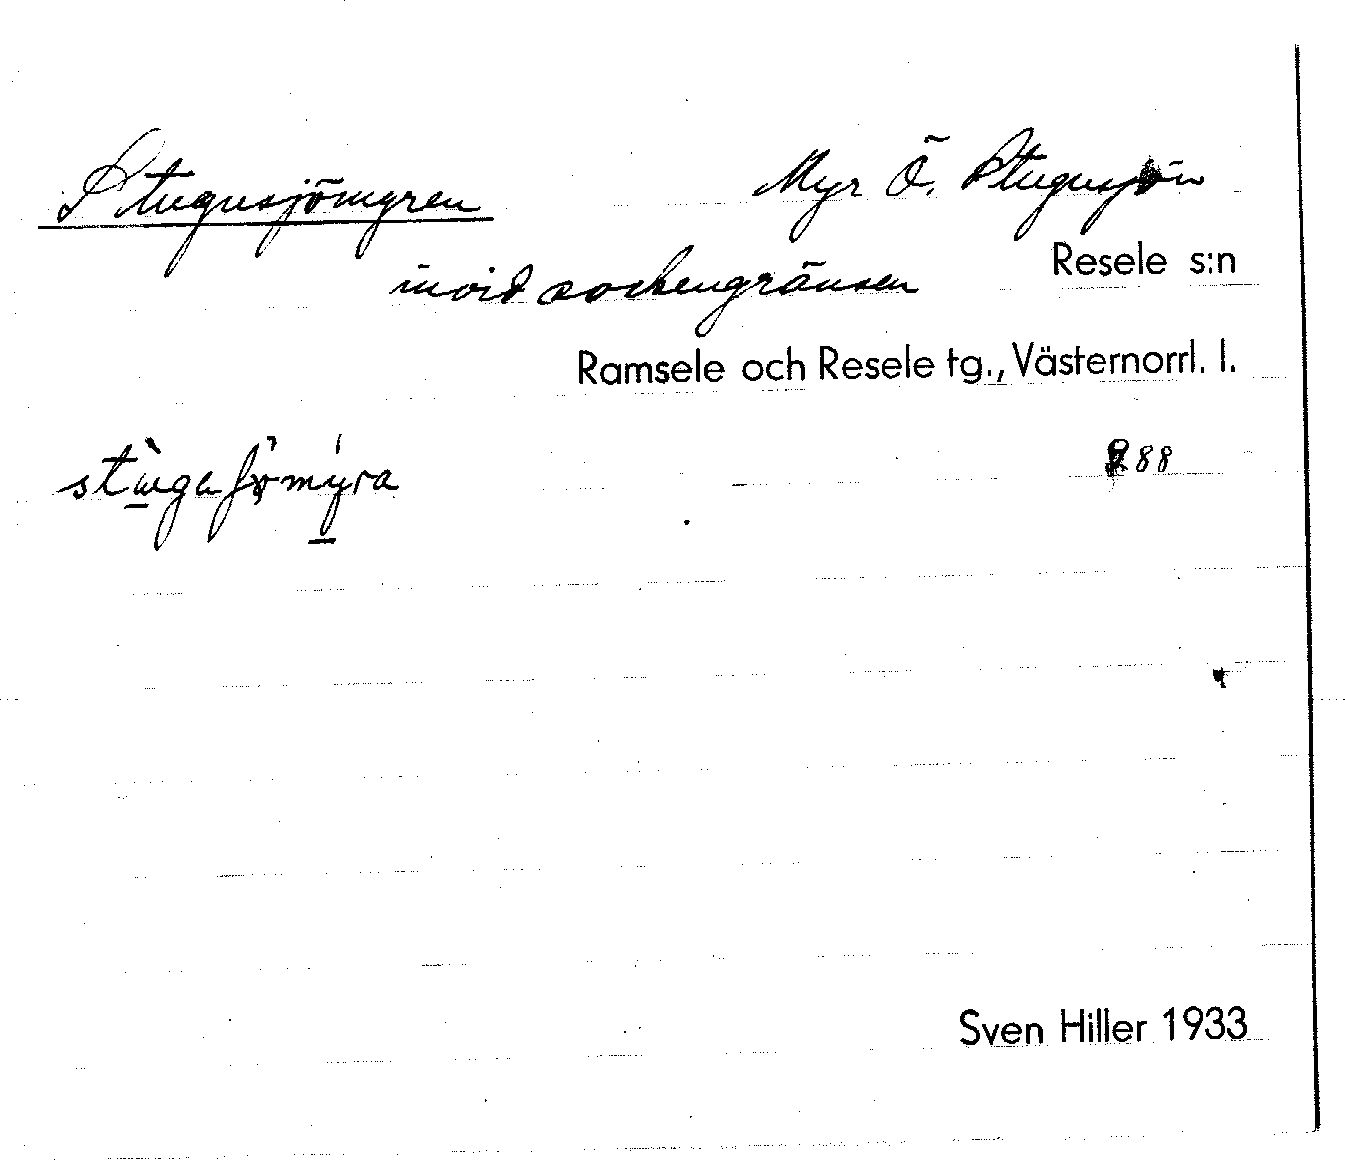 Stugusjömyren Myr Ö. Stugusjön
invid sockengränsen Resele s:n
Ramsele och Resele tg., Västernorrl. l.
288
Sven Hiller 1933